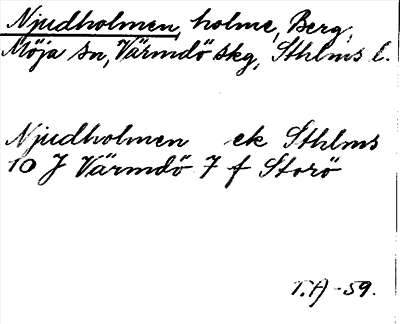 Njudholmen, holme, Berg,
Möja sn, Värmdö skg, Sthlms l.
Njudholmen ek Sthlms
10 J Värmdö 7 f Storö
T.A -59.